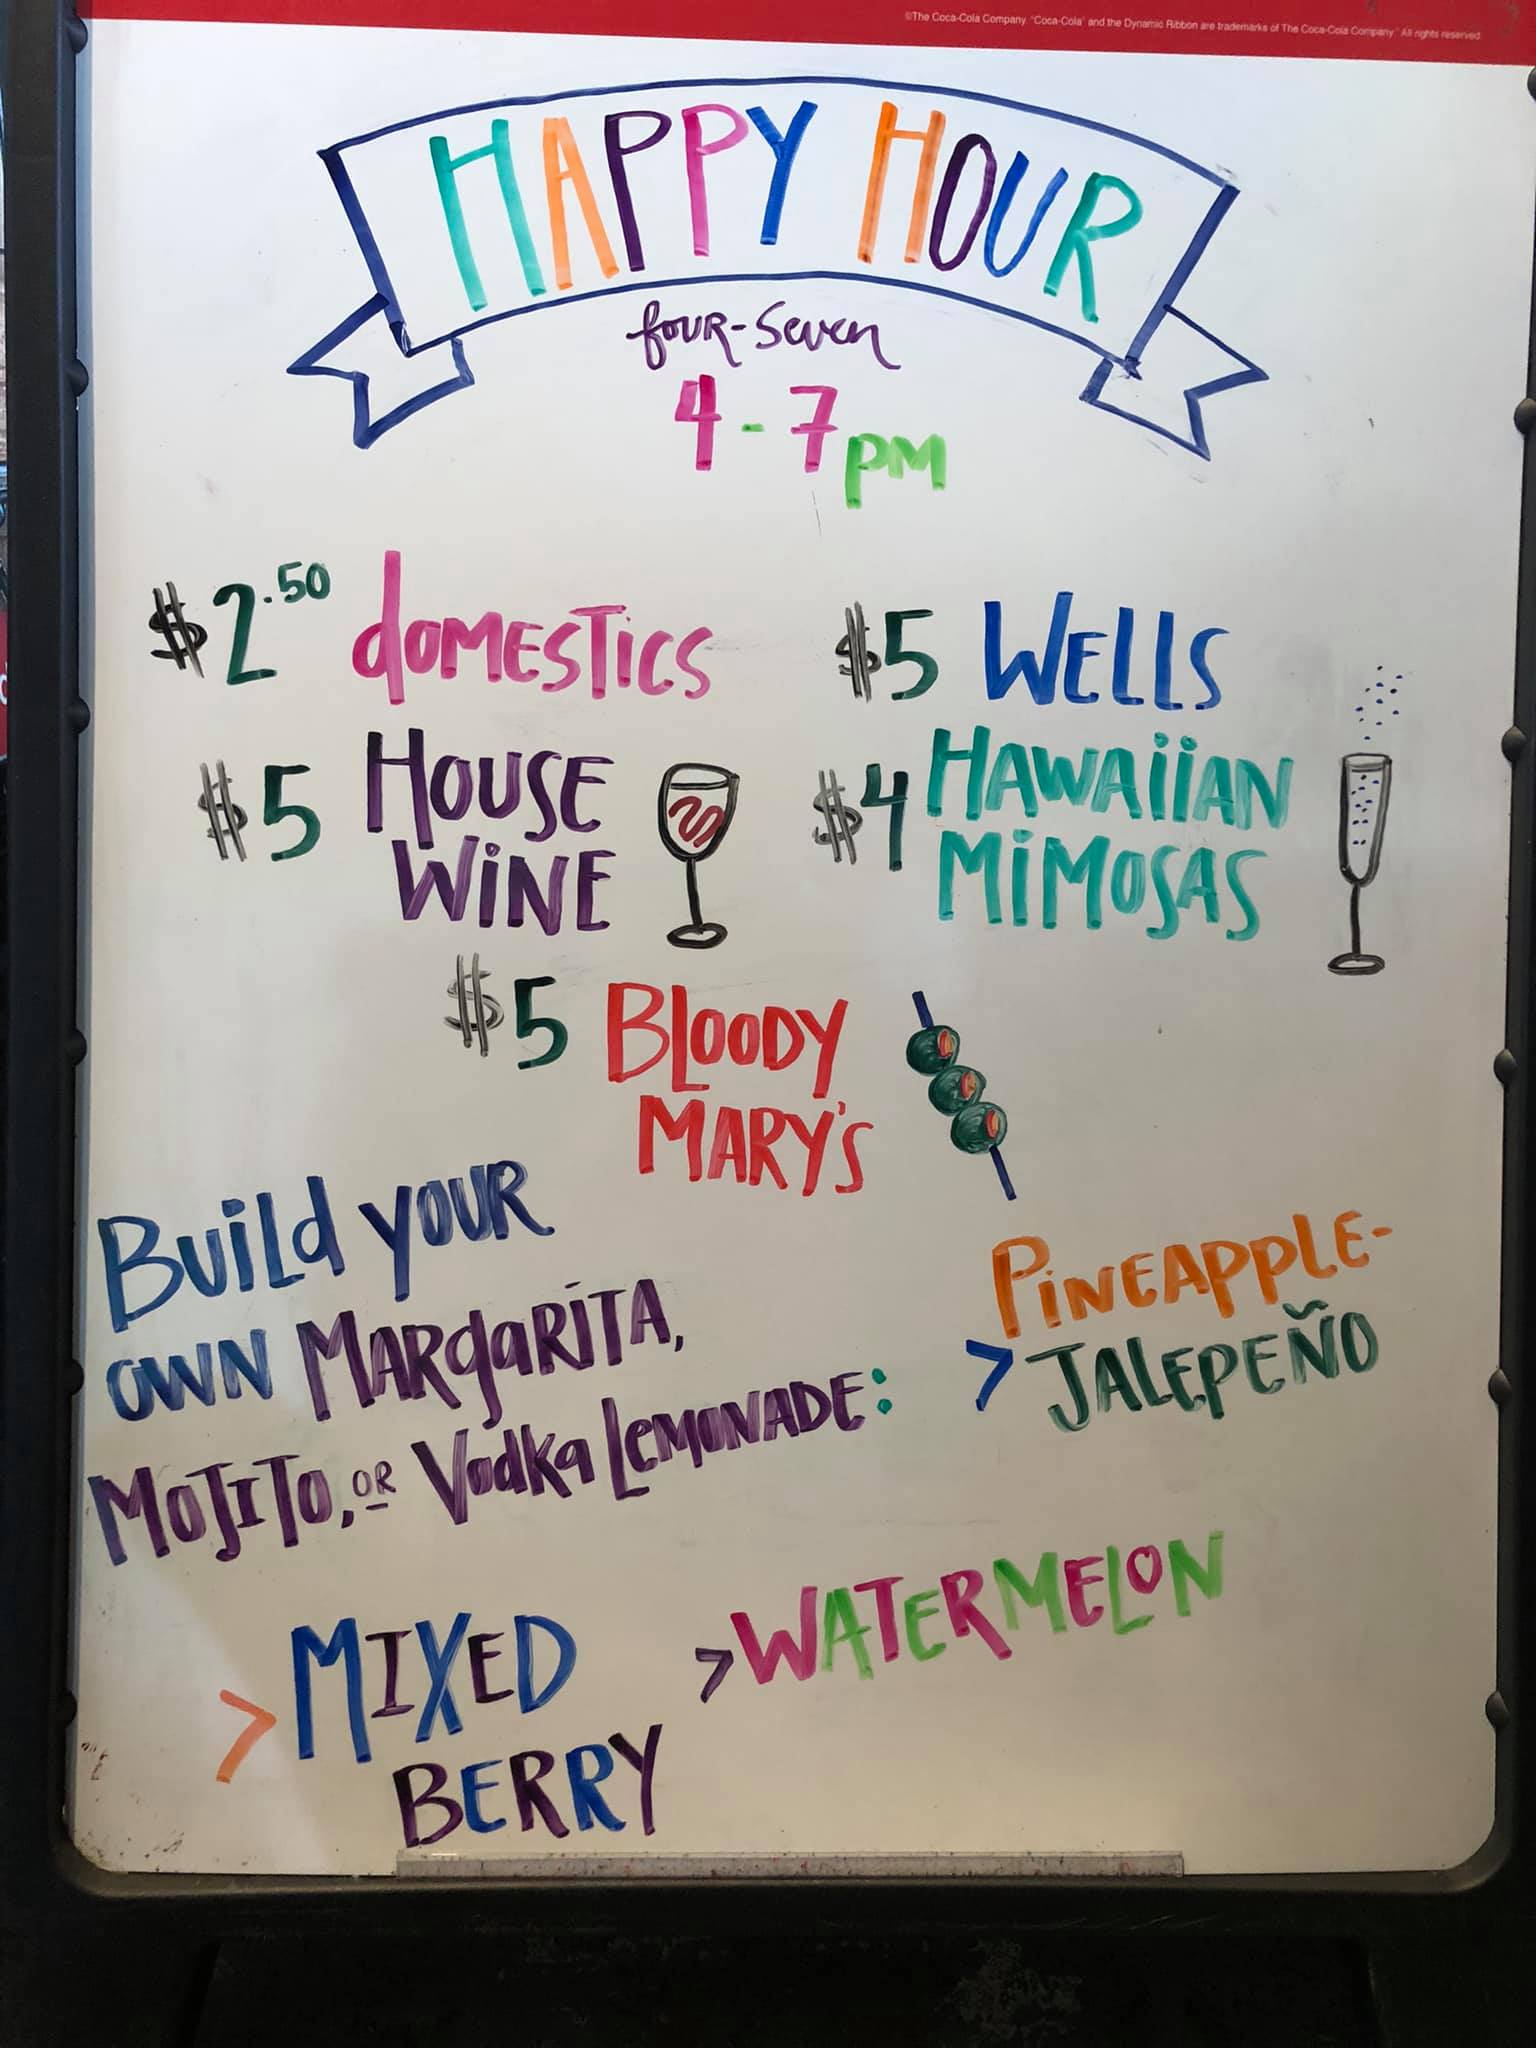 ©The Coca-Cola Company. "Coca-Cola" and the Dynamic Ribbon are trademarks of The Coca-Cola Company. All rights reserved.
HAPPY HOUR
four-seven
4-7 pm
$2.50 domestics
$5 Wells
$5 House Wine
$4 Hawaiian Mimosas
$5 Bloody Mary's
Build your
own Margarita,
Mojito, or Vodka Lemonade:
> Pineapple-
Jalepeño
> Mixed
Berry
> Watermelon